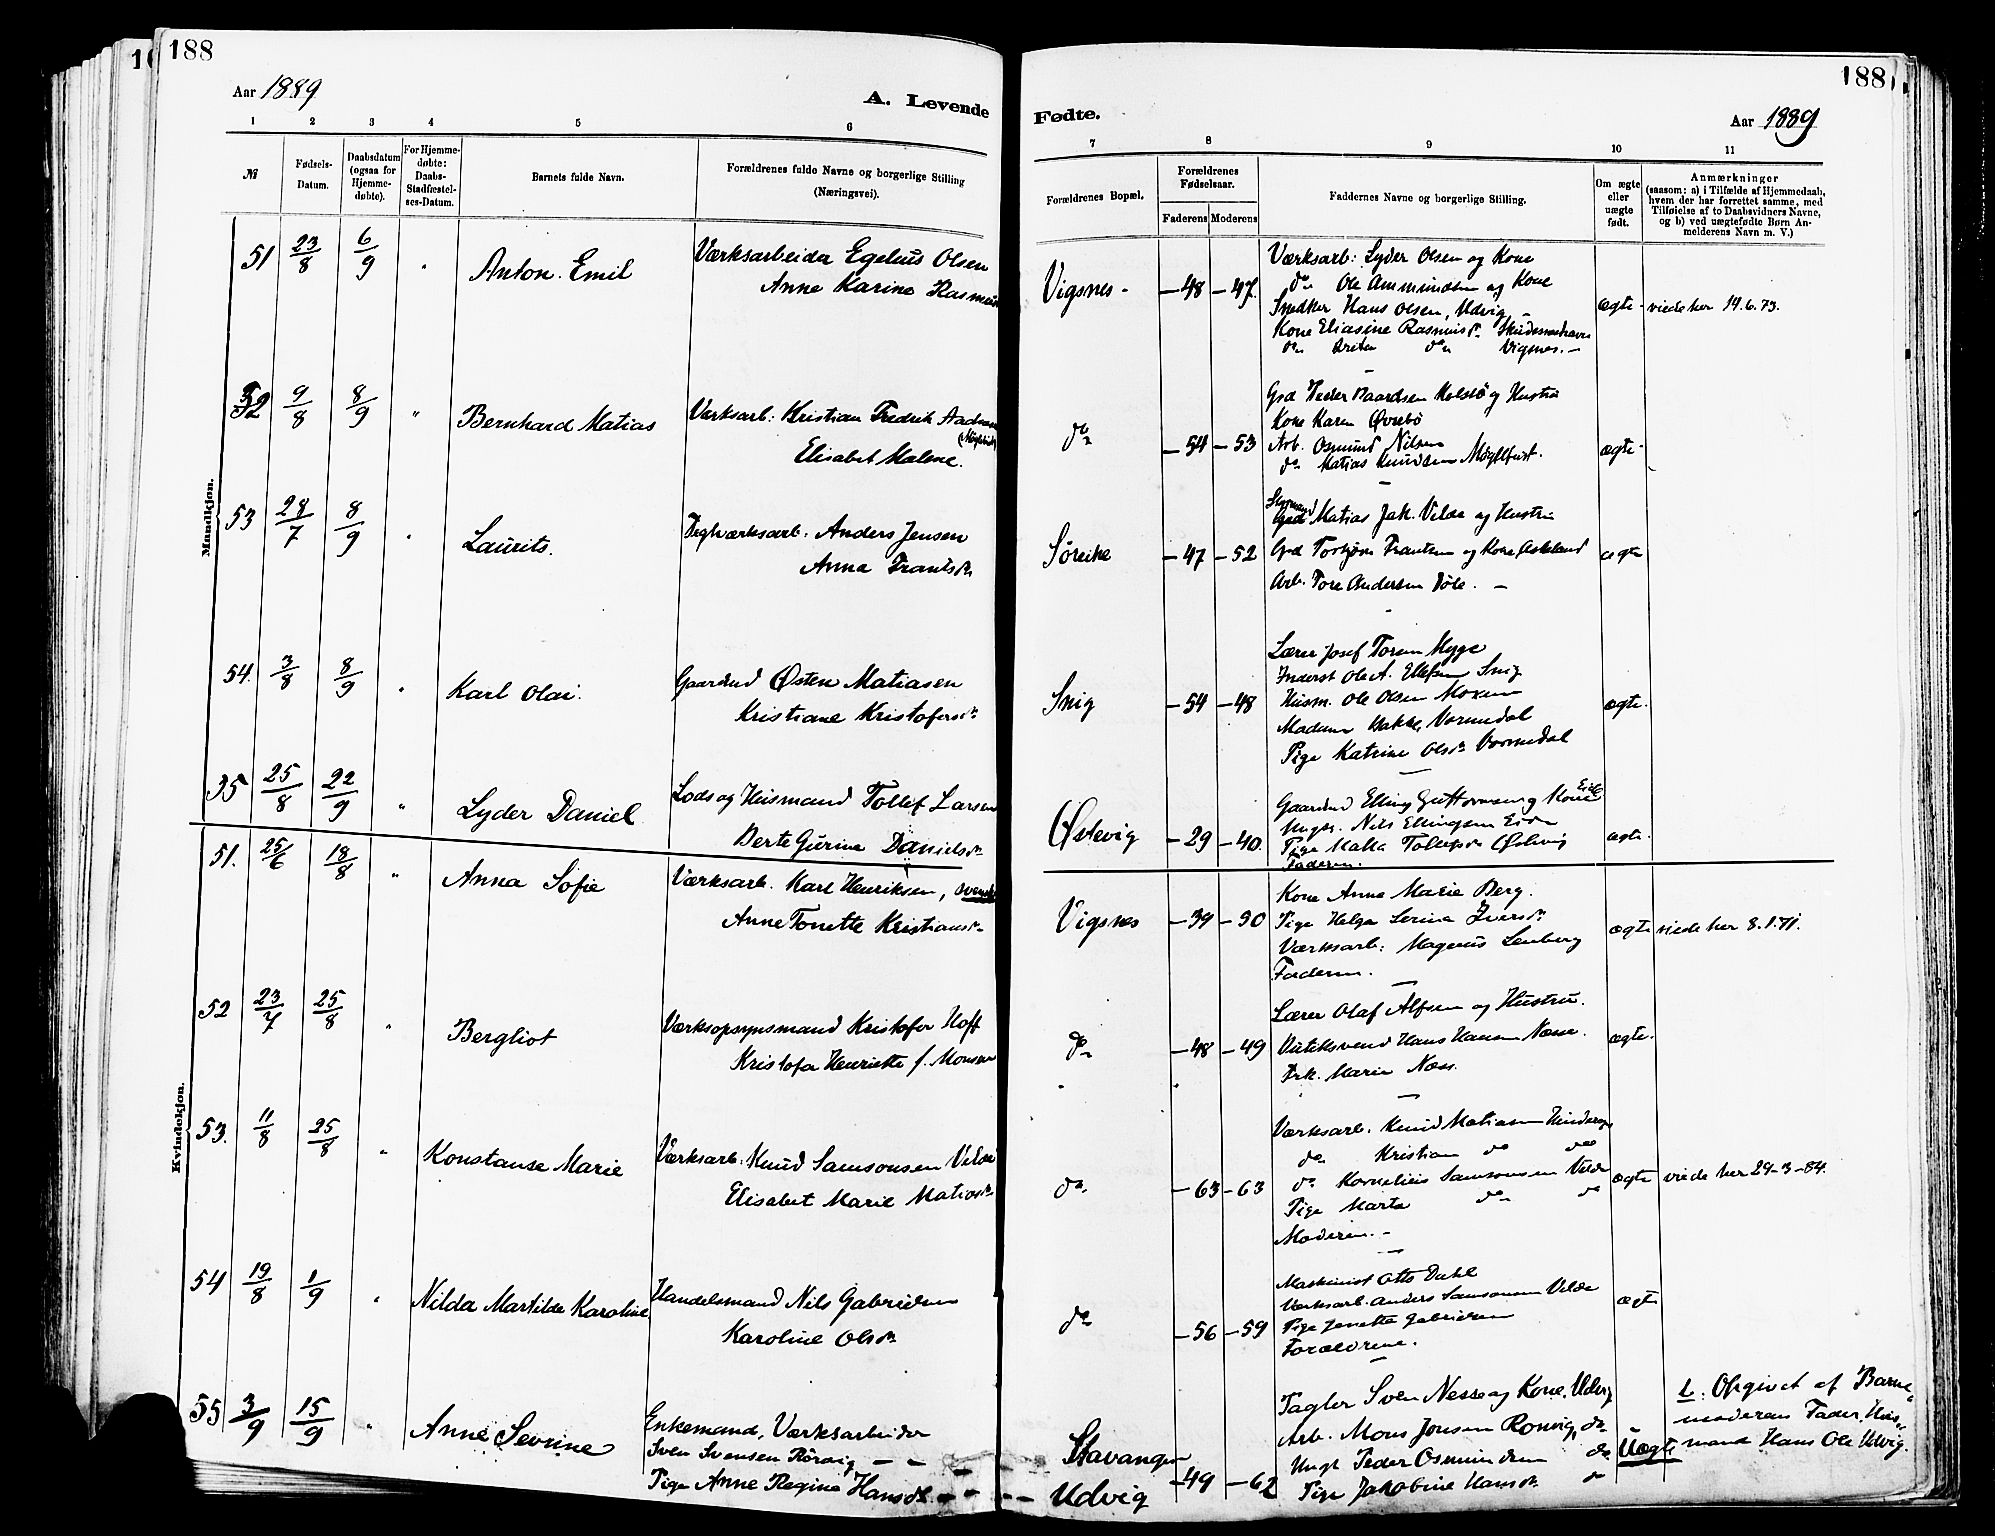 188
Aar 1889
A. Levende
1 2 3 4 5 6
№
Fødsels-Datum.
Daabsdatum (ogsaa for Hjemmedøbte).
For Hjemmedøbte: Daabs-Stadfæstelses-Datum.
Barnets fulde Navn.
Forældrenes fulde Navne og borgerlige Stilling
(Næringsvei).
Mandkjøn.
51 23/8 6/9 " Anton Emil Værksarbeider Egelius Olsen
Anne Karine
52 9/8 8/9 " Bernhard Matias Værksarb: Kristian Fredrik
Elisabet Malene.
53 28/7 8/9 " Laurits. Teglværksarb. Anders Jensen
Anna Frantsd.
54. 3/8 8/9 " Karl Olai. Gaardmd Østen Matiasen
Kristiane Kristofersd.
35 25/8 22/9 " Lyder Daniel Lods og Huismand Tollef Larsen
Berte Gurine Danielsd.
Kvindekjøn.
51. 25/6 18/8 " Anna Sofie Værksarb. Karl Henriksen, svensk
Anne Tonette Kristiansd.
52 23/7 25/8 " Bergliot Værksopsynsmand Kristofer Hoff
Kristofa Henriette f. Monsen
53. 11/8 25/8 " Konstanse Marie Værksarb: Knud Samsonsen Velde
Elisabet Marie Matiasd.
54 19/8 1/9 " Nilda Martilde Karoline Handelsmand Nils Gabrielsen
Karoline Olsd.
55 3/9 15/9 " Anne Sevrine Enkemand, Værksarbeider
Sven Svensen Rørvig — —
Pige Anne Regine Hansd.
188
Fødte.
Aar 1889
7 8 9 10 11
Forældrenes Bopæl.
Forældrenes Fødselsaar.
Faderens Moderens
Faddernes Navne og borgerlige Stilling.
Om ægte eller uægte født.
Anmærkninger
(saasom: a) i Tilfælde af Hjemmedaab,
hvem der har forrettet samme, med
Tilføielse af to Daabsvidners Navne,
og b) ved uægtefødte Børn Anmelderens Navn m. V.)
Værksarb: Lyder Olsen og Kone
do Ole Ammundsen og Kone
Vigsnes - — 48 — 47. Snedker Hans Olsen, Udvig — ægte - viede her 14.6.73.
Kone Eliasine Rasmusd. Skudesneshavn
do do Vigsnes. —
Grd Peder Baardsen og Hustru
Kone Karen Øvrebø
do — 54 — 53 Arb. Osmund Nilsen ægte -
do Matias Knudsen
Grd Matias Jak. Velde og Hustru
— 47 — 52 Grd Torbjørn Frantsen og Kone Askeland ægte
Arb. Tore Andersen
Lærer Josef
Inderst Ole A. Ellefsen Snig
Snig — 54 — 48 Husm. Ole Olsen ægte.
Madame Bakke,
Pige Katrine Olsd.
Gaardmd Elling Guttormsen og Kone Eide
Ungk. Nils Ellingsen Eide
Østevig — 29 — 40. Pige Malla Tollefsd. Østevig ægte.
Faderen.
Kone Anne Marie Berg.
Vigsnes — 39 — 30 Pige Helga Serina Iversd. ægte viede her 8.1.71.
Værksarb: Magnus Lenberg
Faderen.
Lærer Olaf Alfsen og Hustru.
do — 48 — 49 Butiksvend Hans Hansen Næsse. ægte.
Frk. Marie Næss.
Værksarb. Knud Matiasen
do Kristian do do
do. — 63 — 63 do Kornelius Samsonsen Velde ægte viede her 29-3-84.
Pige Marta do do
Moderen. —
Maskinist Otto Dahl
Værksarb. Anders Samsonsen Velde
do — 56 — 59 Pige Jenetta Gabrielsen ægte
Forældrene.
Sven Nesse og Kone, Udvig
Stavanger Arb. Mons Jonsen Ronvig, do Uægte
Udvig — 49 — 62 Ungk Peder Osmundsen do
Pige Jakobine Hansd. do
1. Opgivet af Barne-
moderens Fader, Hus-
mand Hans Ole Udvig.